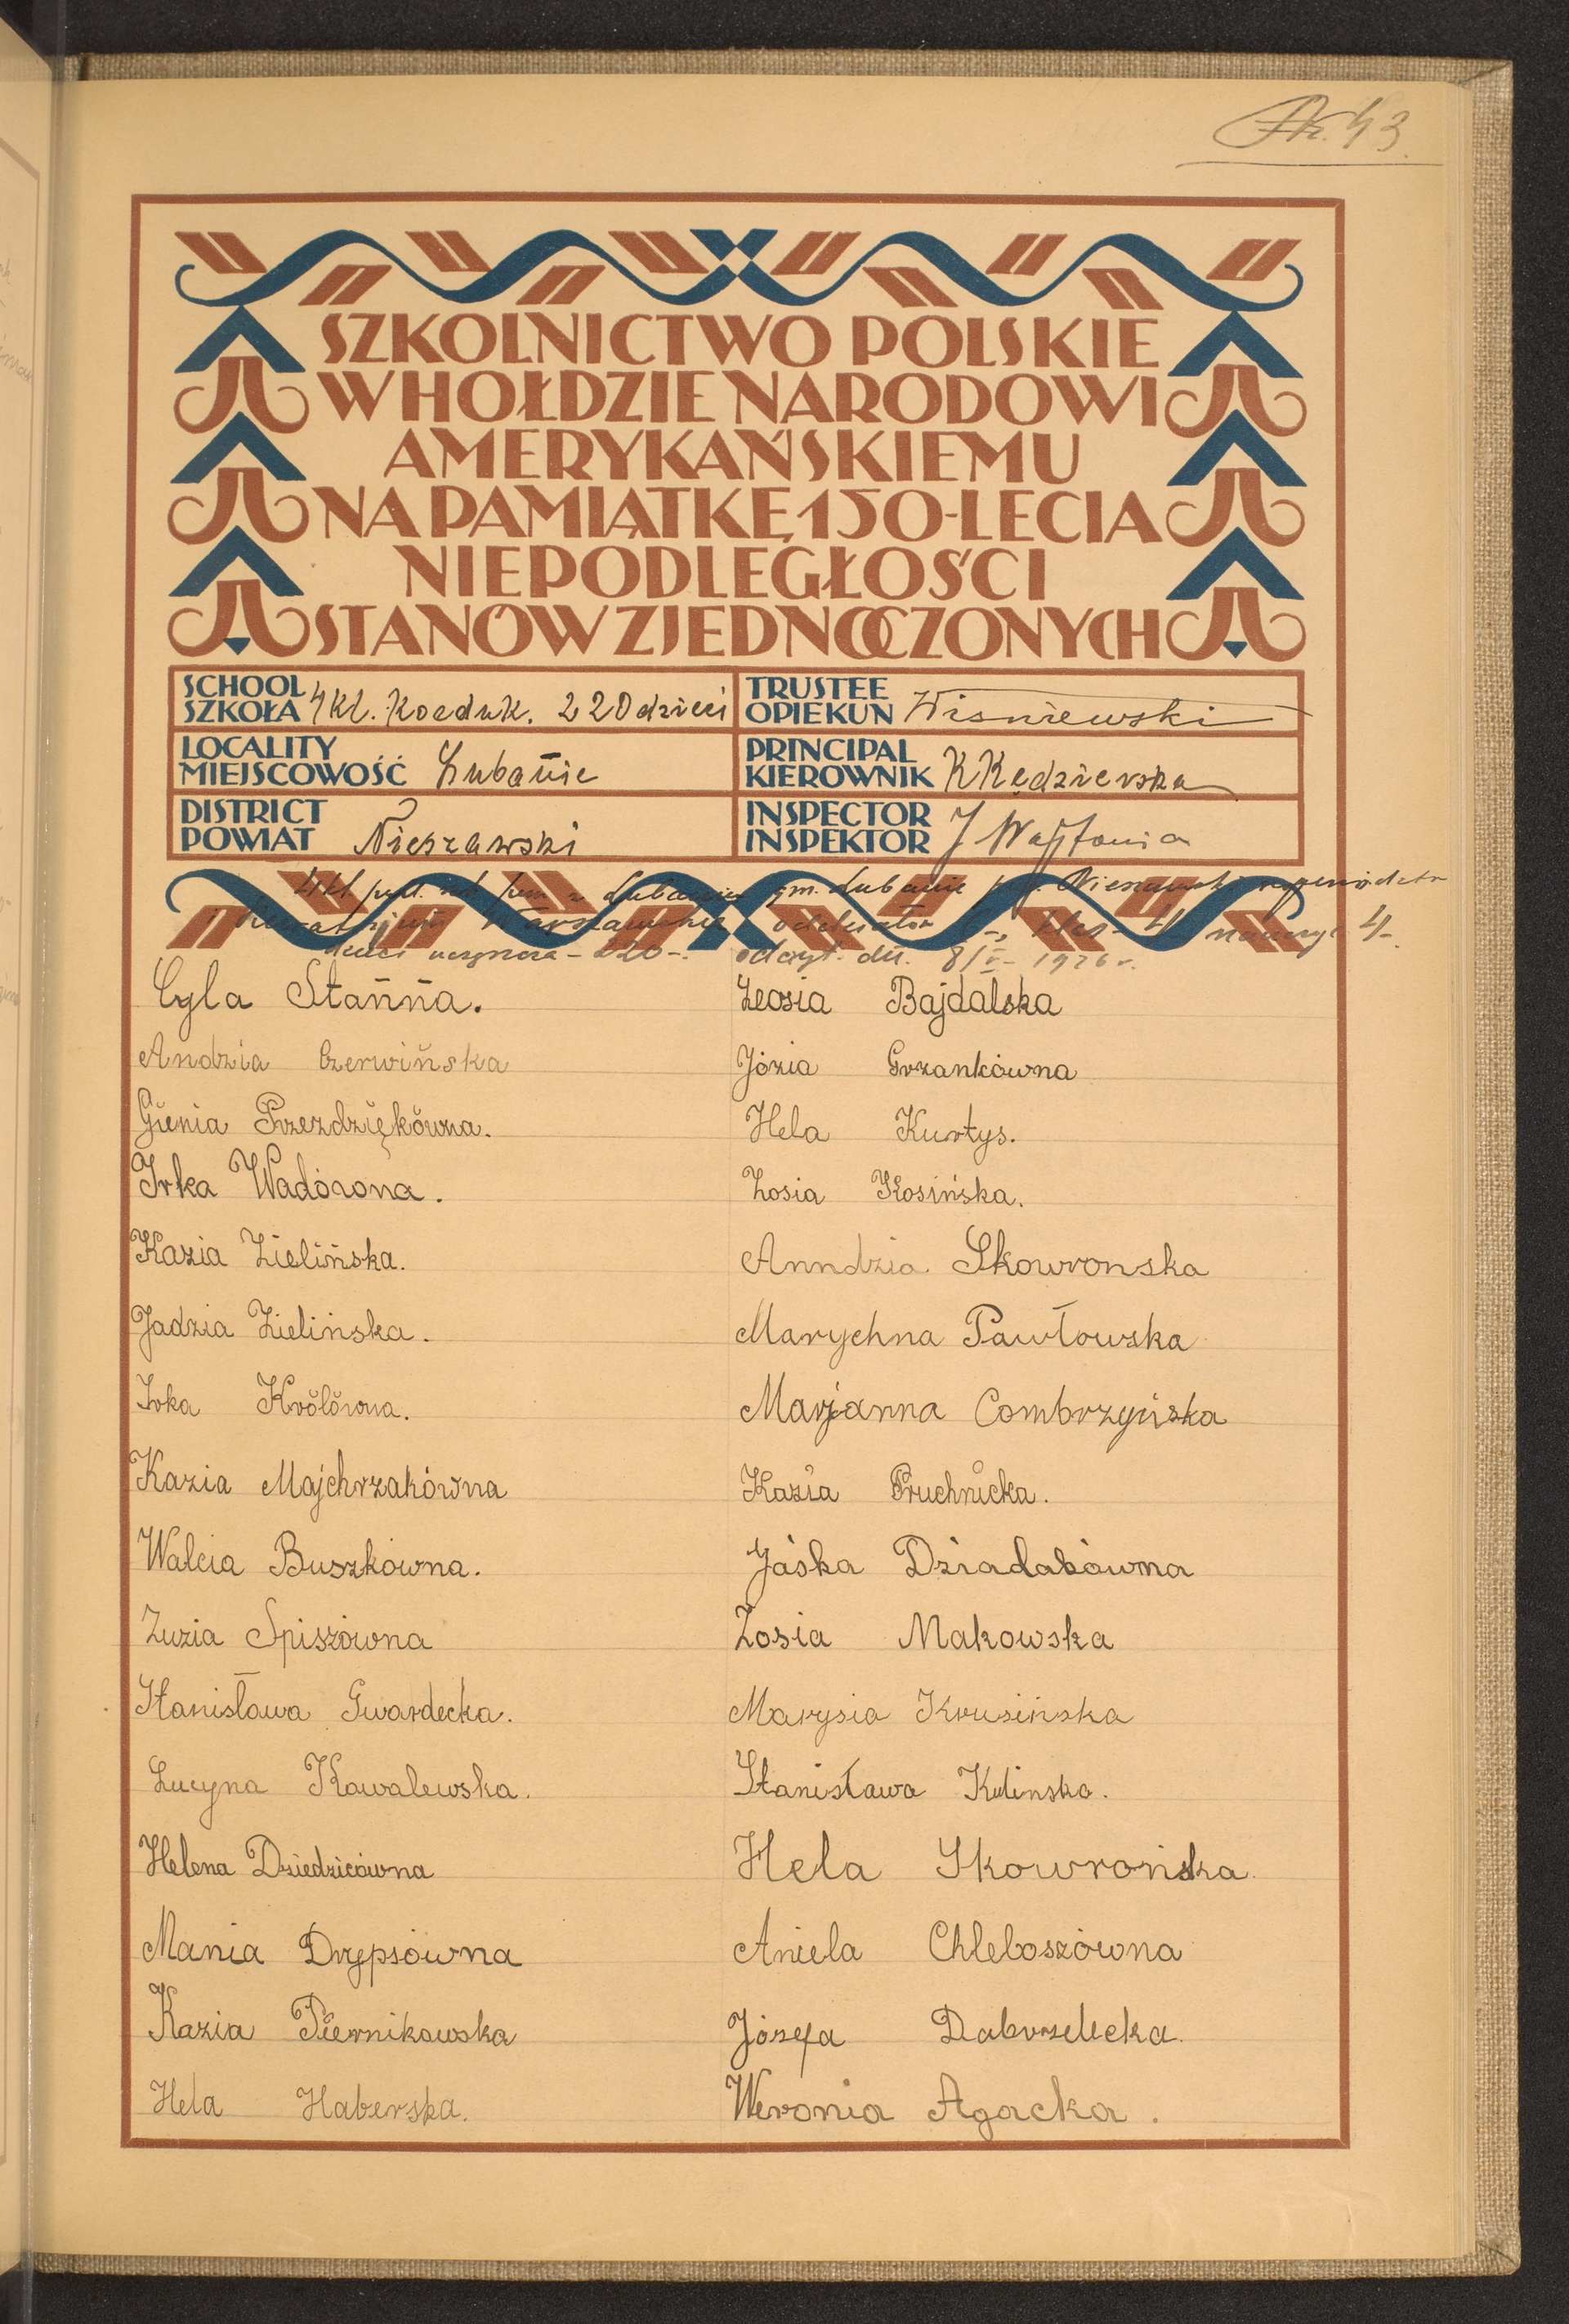 Nr. 43.
SZKOLNICTWO POLSKIE
W HOŁDZIE NARODOWI
AMERYKAŃSKIEMU
NA PAMIĄTKĘ 150-LECIA
NIEPODLEGŁOŚCI
STANÓW ZJEDNOCZONYCH
SCHOOL
SZKOŁA 4 kl. Koeduk. 220 dzieci
TRUSTEE
OPIEKUN Wisniewski
LOCALITY
MIEJSCOWOŚĆ Lubanie
PRINCIPAL
KIEROWNIK K Kędzierska
DISTRICT
POWIAT Nieszawski
INSPECTOR
INSPEKTOR J
4 kl w Lubaniu gm. Lubanie pow. Nieszawski
Warszawskie oddziałów klas - 4 nauczyc 4-.
dzieci uczęszcza - 220 -. dn. 8/V - 1926 r.
Cyla Stanna.
Andzia Czerwińska
Gienia Przezdziękówna.
Irka Wadózona.
Kazia Zielińska.
Jadzia Zielińska.
Irka Królówna.
Kazia Majchrzakówna
Walcia Buszkówna.
Zuzia Spiszówna
Stanisława Gwardecka.
Lucyna Kawalewska.
Helena Dziedzicówna
Mania Drypsówna
Kazia Piernikowska
Hela Haberska.
Zeosia Bajdalska
Józia Grzankówna
Hela Kurtys.
Zosia Kosińska.
Anndzia Skowronska
Marychna Pawłowska
Marjanna Combrzyńska
Kazia Pruchnicka.
Jáska Dziadakówna
Zosia Makowska
Marysia Krusińska
Stanisława Kulinska.
Hela Skowrońska.
Aniela Chleboszówna
Józefa Dabrzelecka.
Weronia Agacka.